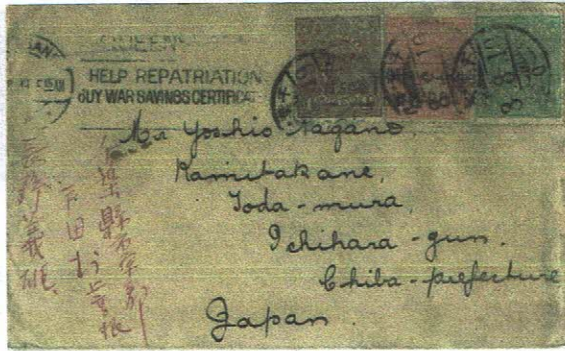 HELP REPATRIATION
BUY WAR SAVINGS CERTIFICATES
Mr Yoshio Nagano,
Kamitakane,
Toda-mura,
Ichihara-gun.
Chiba-prefecture
Japan.
千葉縣市原郡
戸田村上高根
長野義雄